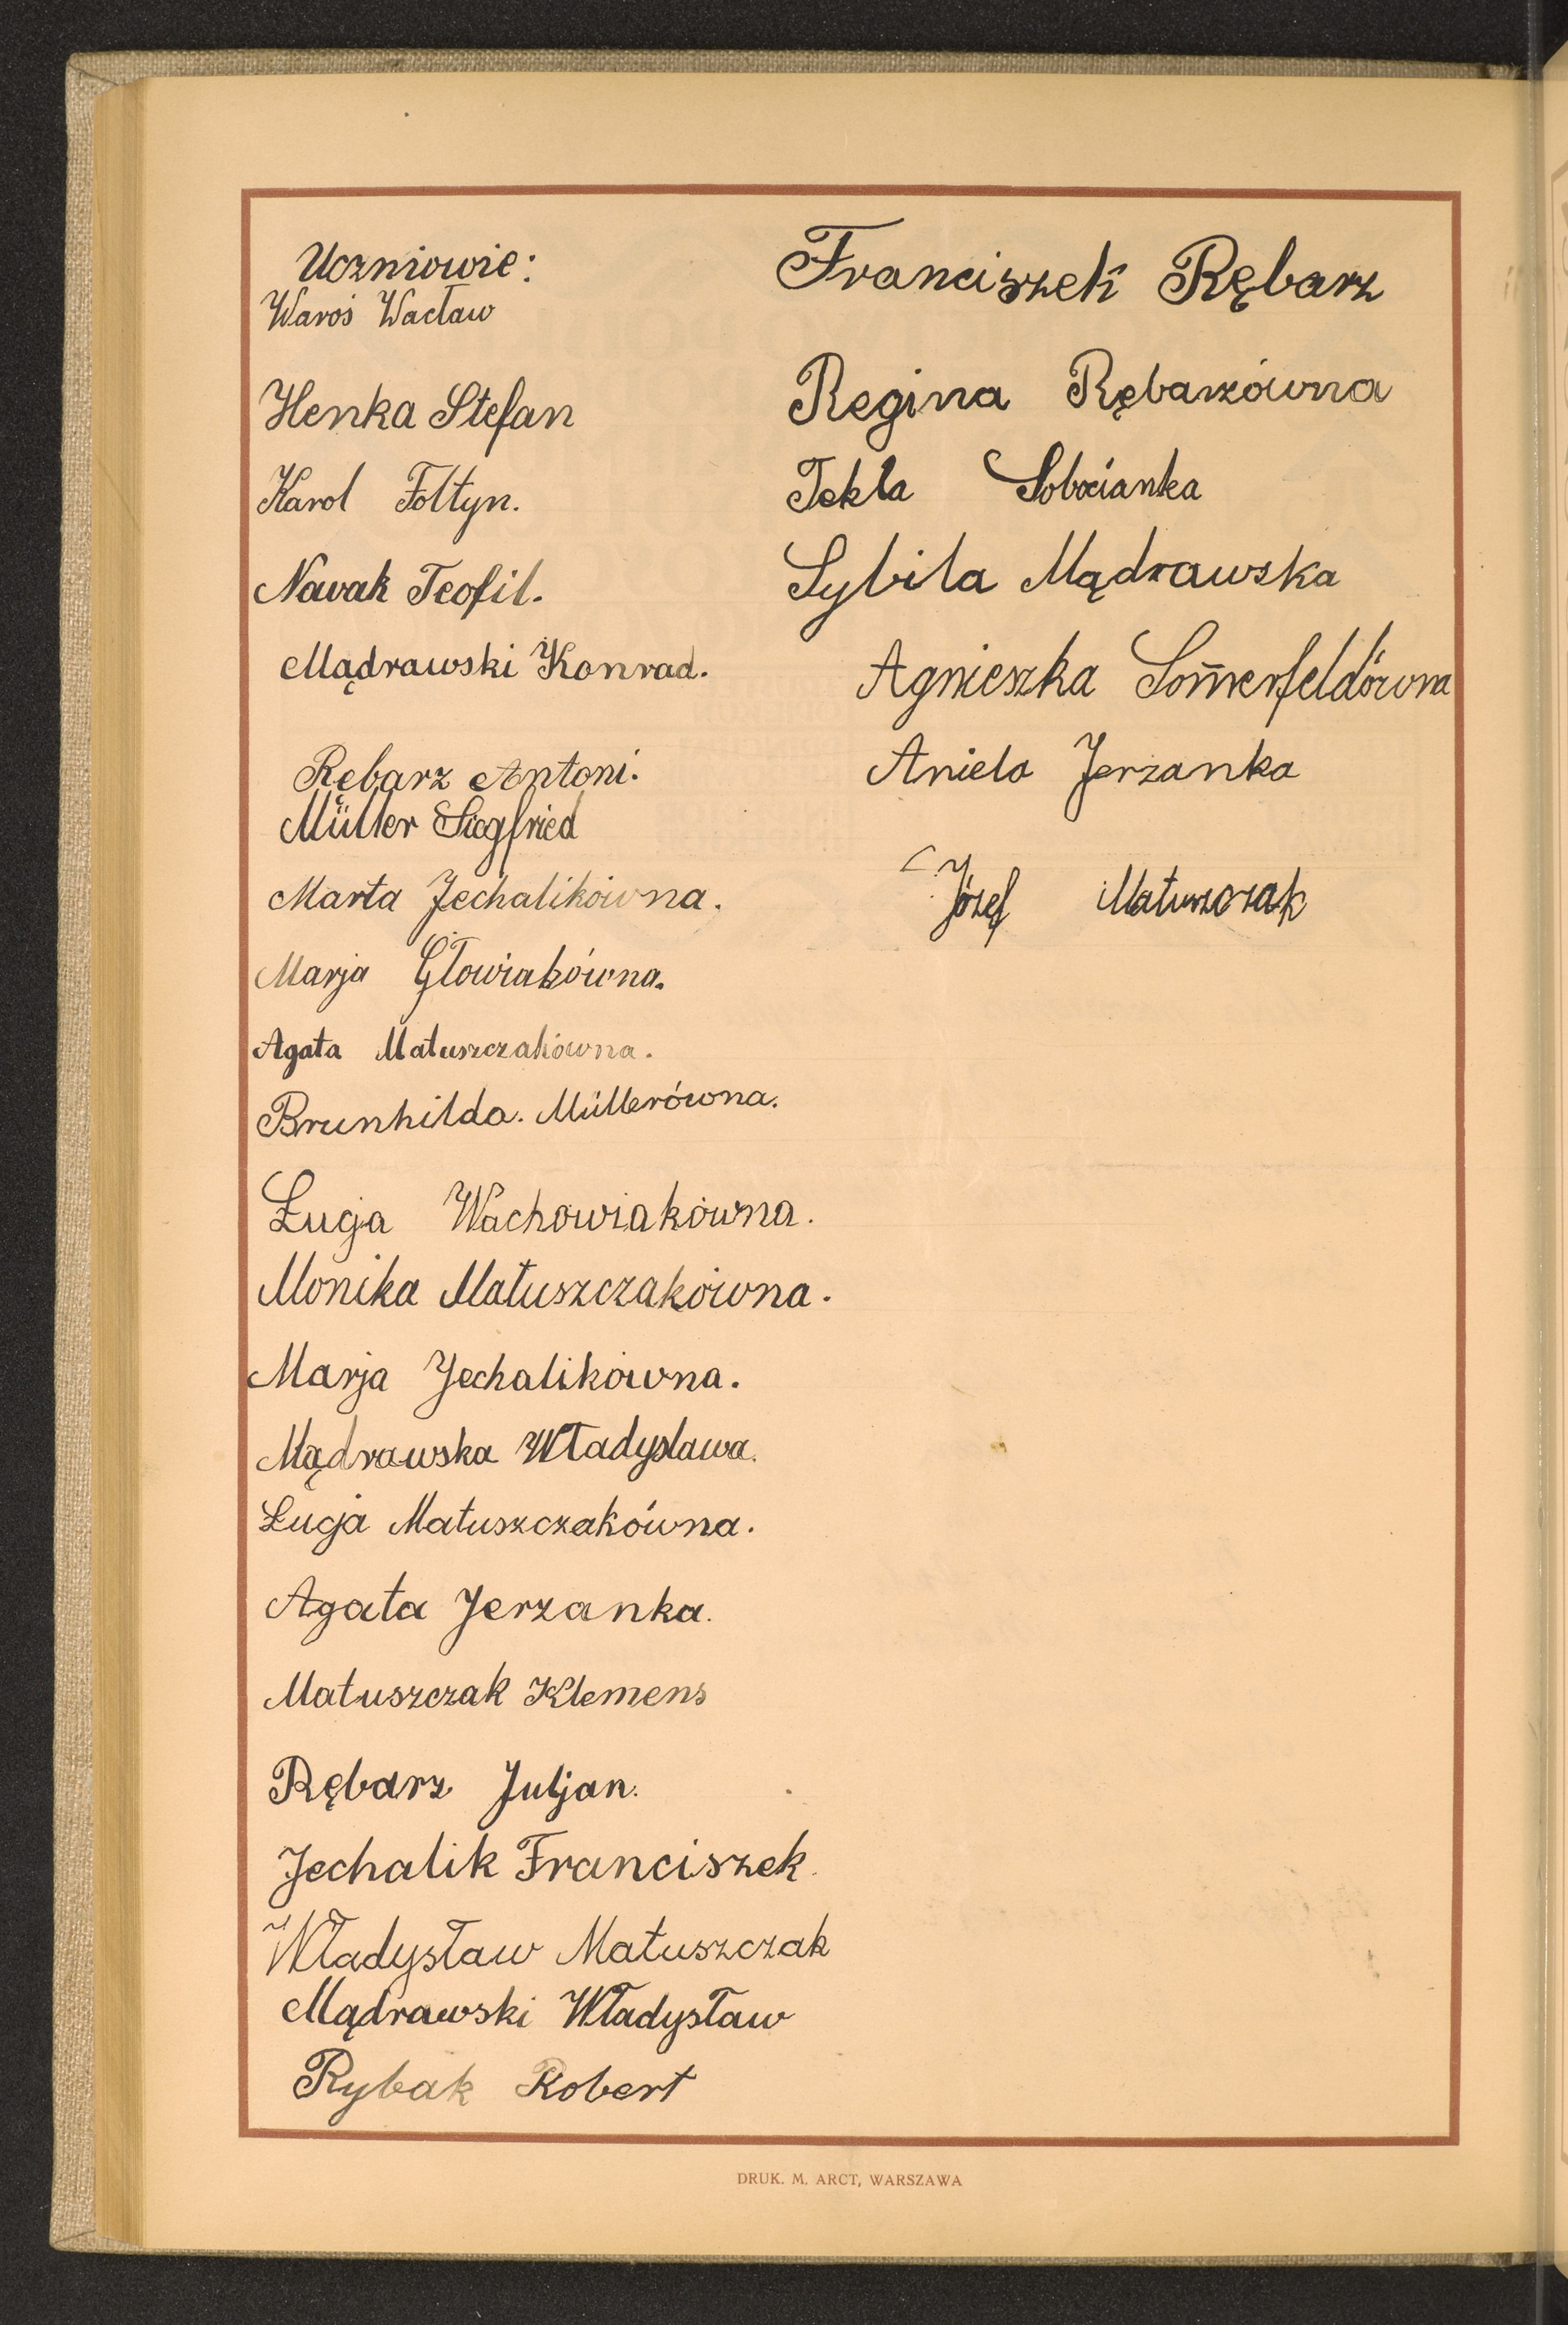 Uczniowie:
Waroś Wacław
Henka Stefan
Karol Foltyn.
Nawak Teofil.
Mądrawski Konrad.
Rębarz Antoni.
Müller Siegfried
Marta Jechalikówna.
Marja Głowiakówna.
Agata Matuszczakówna.
Brunhilda. Müllerówna.
Łucja Wachowiakówna.
Monika Matuszczakówna.
Marja Jechalikówna.
Mądrawska Władysława.
Łucja Matuszczakówna.
Agata Jerzanka.
Matuszczak Klemens
Rębarz Juljan.
Jechalik Franciszek.
Władysław Matuszczak
Mądrawski Władysław
Rybak Robert
Franciszek Rębarz
Regina Rębarzówna
Tekla Sobocianka
Sybila Mądrawska
Agnieszka Som̄erfeldówna
Aniela Jerzanka
Józef Matuszczak
DRUK. M. ARCT, WARSZAWA